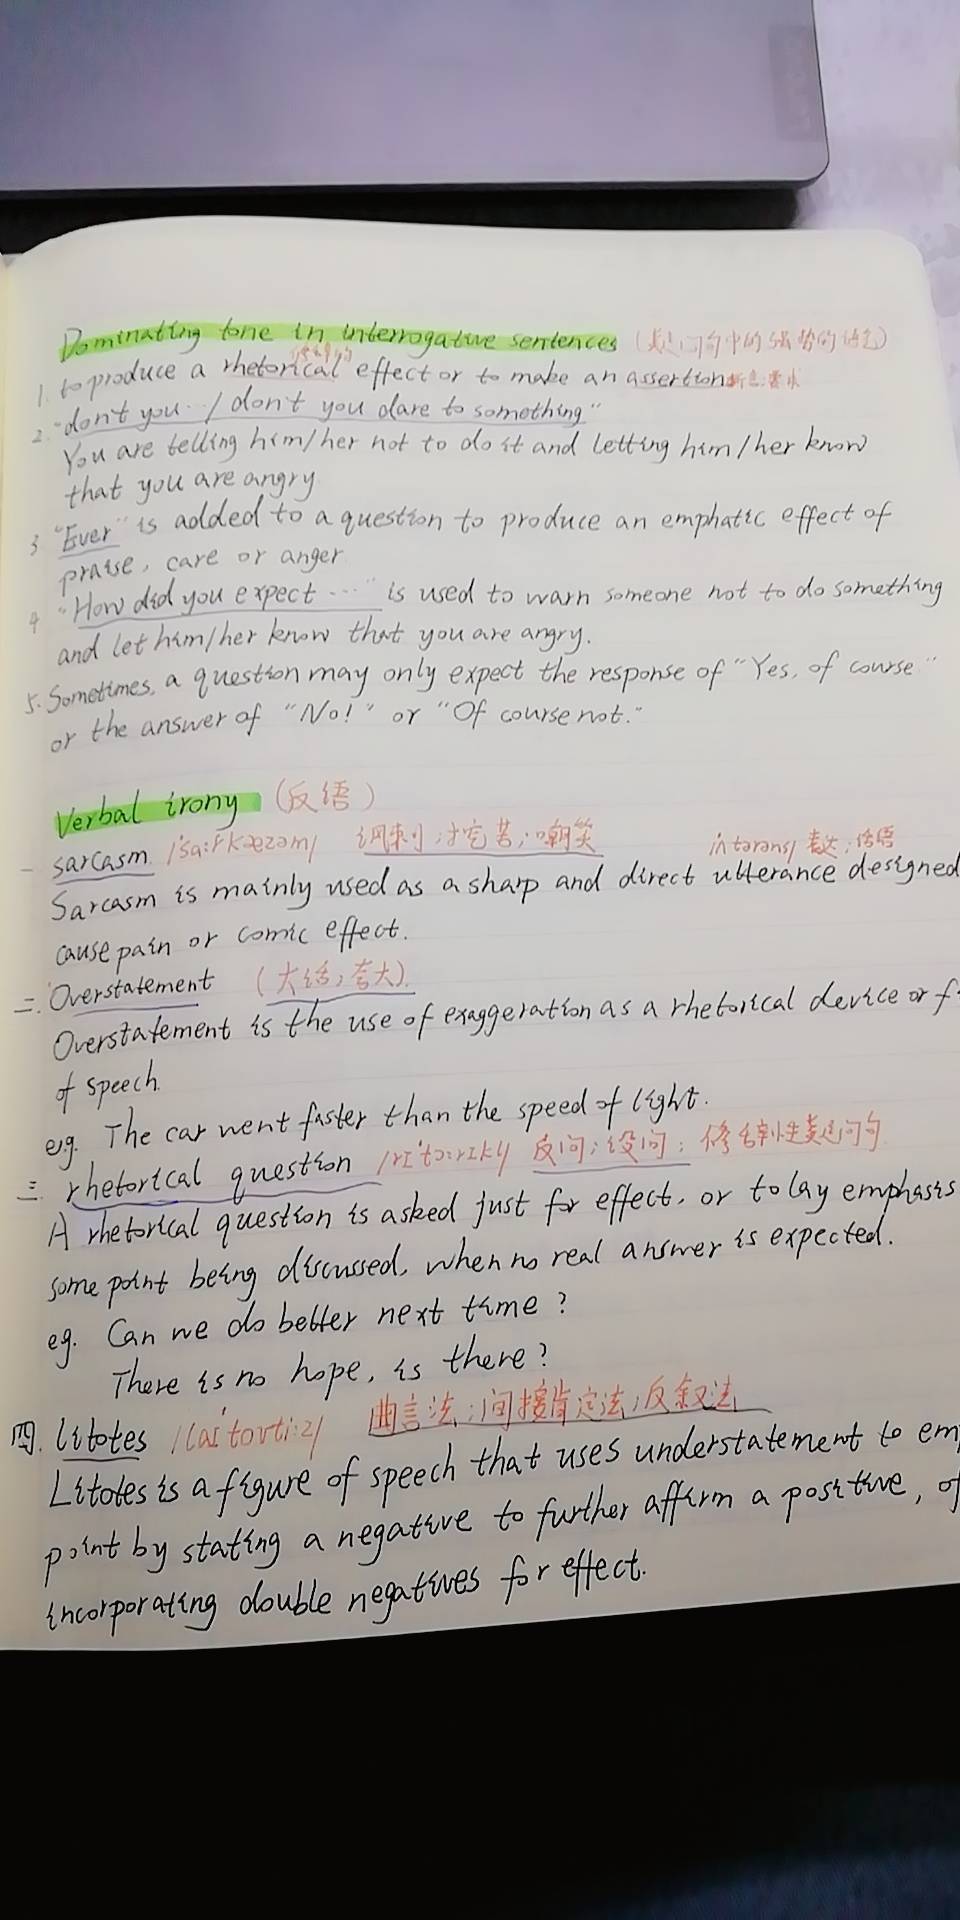 Dominating tone in interrogative sentences (疑问句中的强势的语气)
修辞的
1. to produce a rhetorical effect or to make an assertion 断言;要求
2. "don't you... / don't you dare to something"
You are telling him/her not to do it and letting him/her know
that you are angry
3 "Ever" is added to a question to produce an emphatic effect of
praise, care or anger
4 "How did you expect ..." is used to warn someone not to do something
and let him/her know that you are angry.
5. Sometimes, a question may only expect the response of "Yes, of course."
or the answer of "No!" or "Of course not."
Verbal irony (反语)
一 sarcasm. /'sa:rkæzəm/ 讽刺;挖苦;嘲笑
/'ʌtərəns/ 表达;话语
Sarcasm is mainly used as a sharp and direct utterance designed
cause pain or comic effect.
二. Overstatement (大话;夸大).
Overstatement is the use of exaggeration as a rhetorical device or f
of speech.
eg. The car went faster than the speed of light.
三. rhetorical question /rɪ'tɔ:rɪkl/ 反问;设问;修辞性疑问句
A rhetorical question is asked just for effect, or to lay emphasis
some point being discussed, when no real answer is expected.
eg. Can we do better next time?
There is no hope, is there?
四. Litotes /laɪ'toʊti:z/ 曲言法;间接肯定法;反叙法
Litotes is a figure of speech that uses understatement to em
point by stating a negative to further affirm a positive, of
incorporating double negatives for effect.